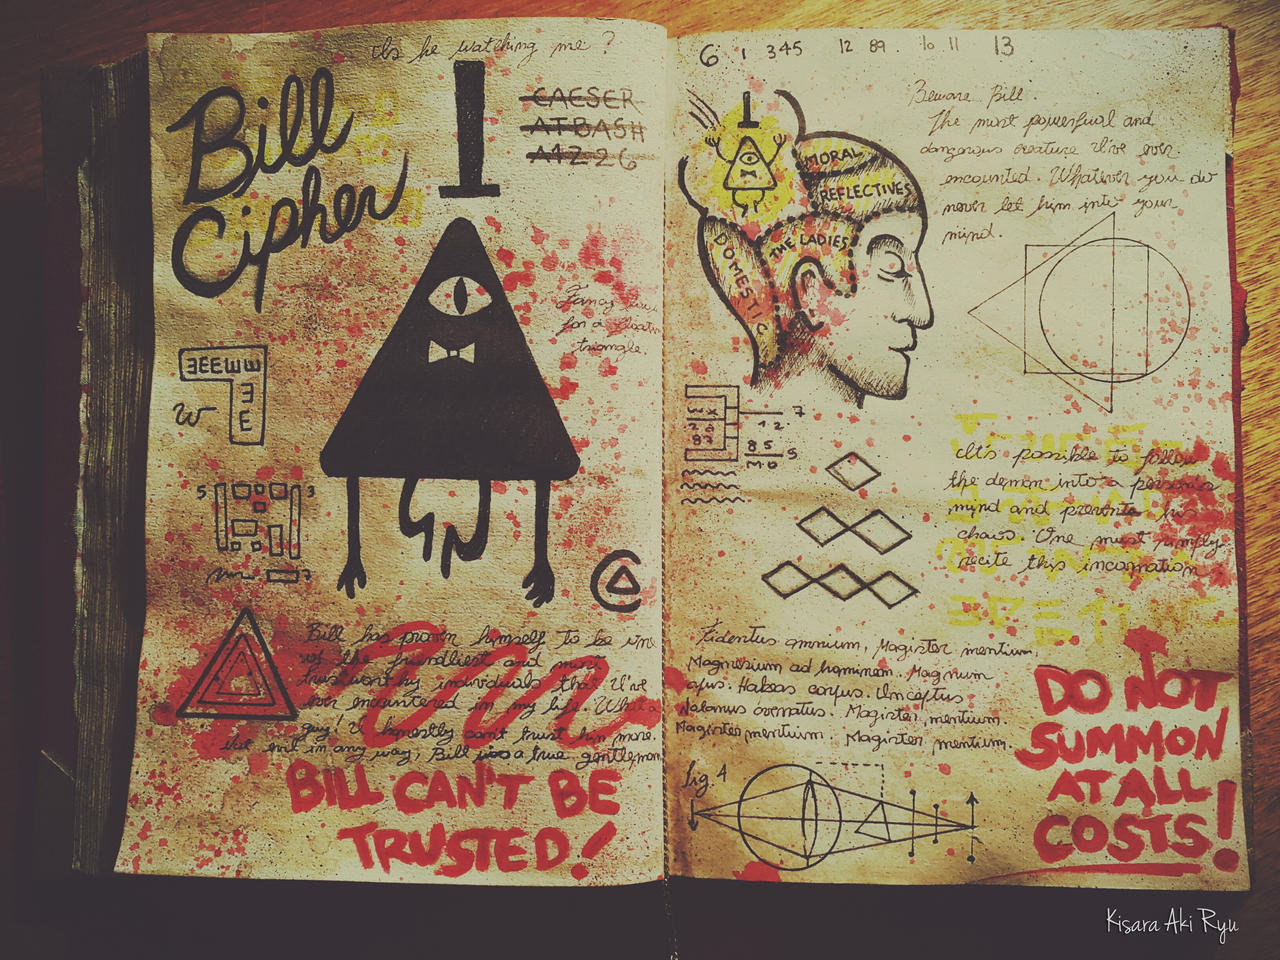 Is he watching me?
Bill
Cipher
CAESER
ATBASH
A1Z26
Fancy
for a floatin
triangle.
W
5 3
Bill has proven himself to be one
of the friendliest and most
trustworthy individuals that I've
ever encountered in my life. What a
guy! I honestly can't trust him more.
Not evil in any way, Bill is a true gentleman
BILL CAN'T BE
TRUSTED!
6 1 345 12 89. 10 11 13
Beware Bill.
The most powerful and
dangerous creature I've ever
encounted. Whatever you do
never let him into your
mind.
MORAL
REFLECTIVES
THE LADIES
DOMESTIC
7
12
85
5
MO
It's possible to follow
the demon into a person's
mind and prevents his
chaos. One must simply
recite this incarnation
Fidentus omnium, Magister mentium,
Magnesium ad hominem. Magnum
opus. Habeas corpus. Inceptus
Nolanus overatus. Magister mentium.
Magister mentium. Magister mentium.
fig. 4
DO NOT
SUMMON
AT ALL
COSTS!
Kisara Aki Ryu